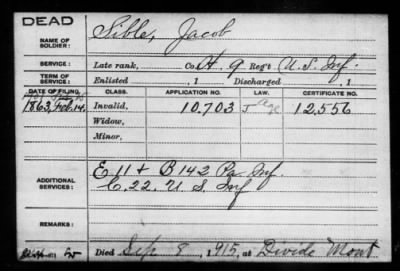 DEAD
NAME OF SOLDIER: Sible, Jacob
SERVICE: Late rank, Co. H. 9 Reg't U.S. Inf.
TERM OF SERVICE: Enlisted , 1 Discharged , 1
DATE OF FILING. CLASS. APPLICATION NO. LAW. CERTIFICATE NO.
1863, Feb. 14. Invalid, 10,703 12,556
Widow,
Minor,
ADDITIONAL SERVICES: E 11 + B 142 Pa Inf.
C. 22. U. S. Inf
REMARKS:
Died Sep 8, 1915, at Divide Mont